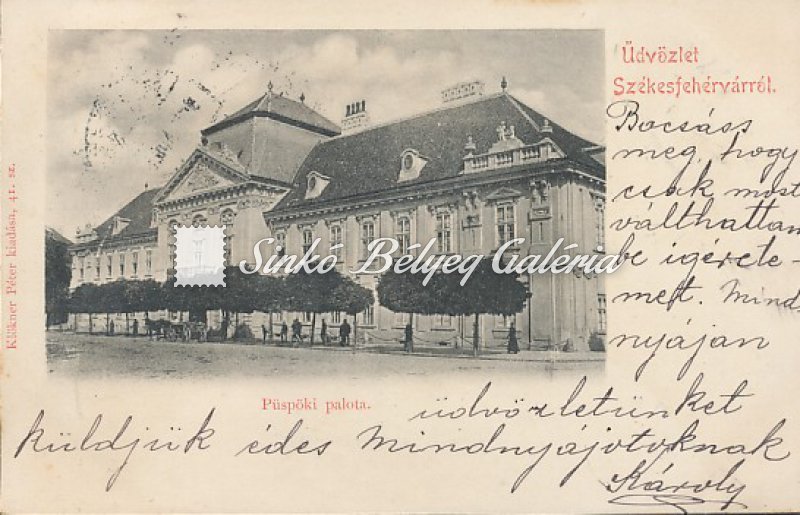 Üdvözlet
Székesfehérvárról.
Klökner Péter kiadása, 41. sz.
Sinkó Bélyeg Galéria
Püspöki palota.
Bocsáss
meg, hogy
csak most
válthattam
be igérete-
met. Mind
nyájan
üdvözletünket
küldjük édes mindnyájotoknak
Károly